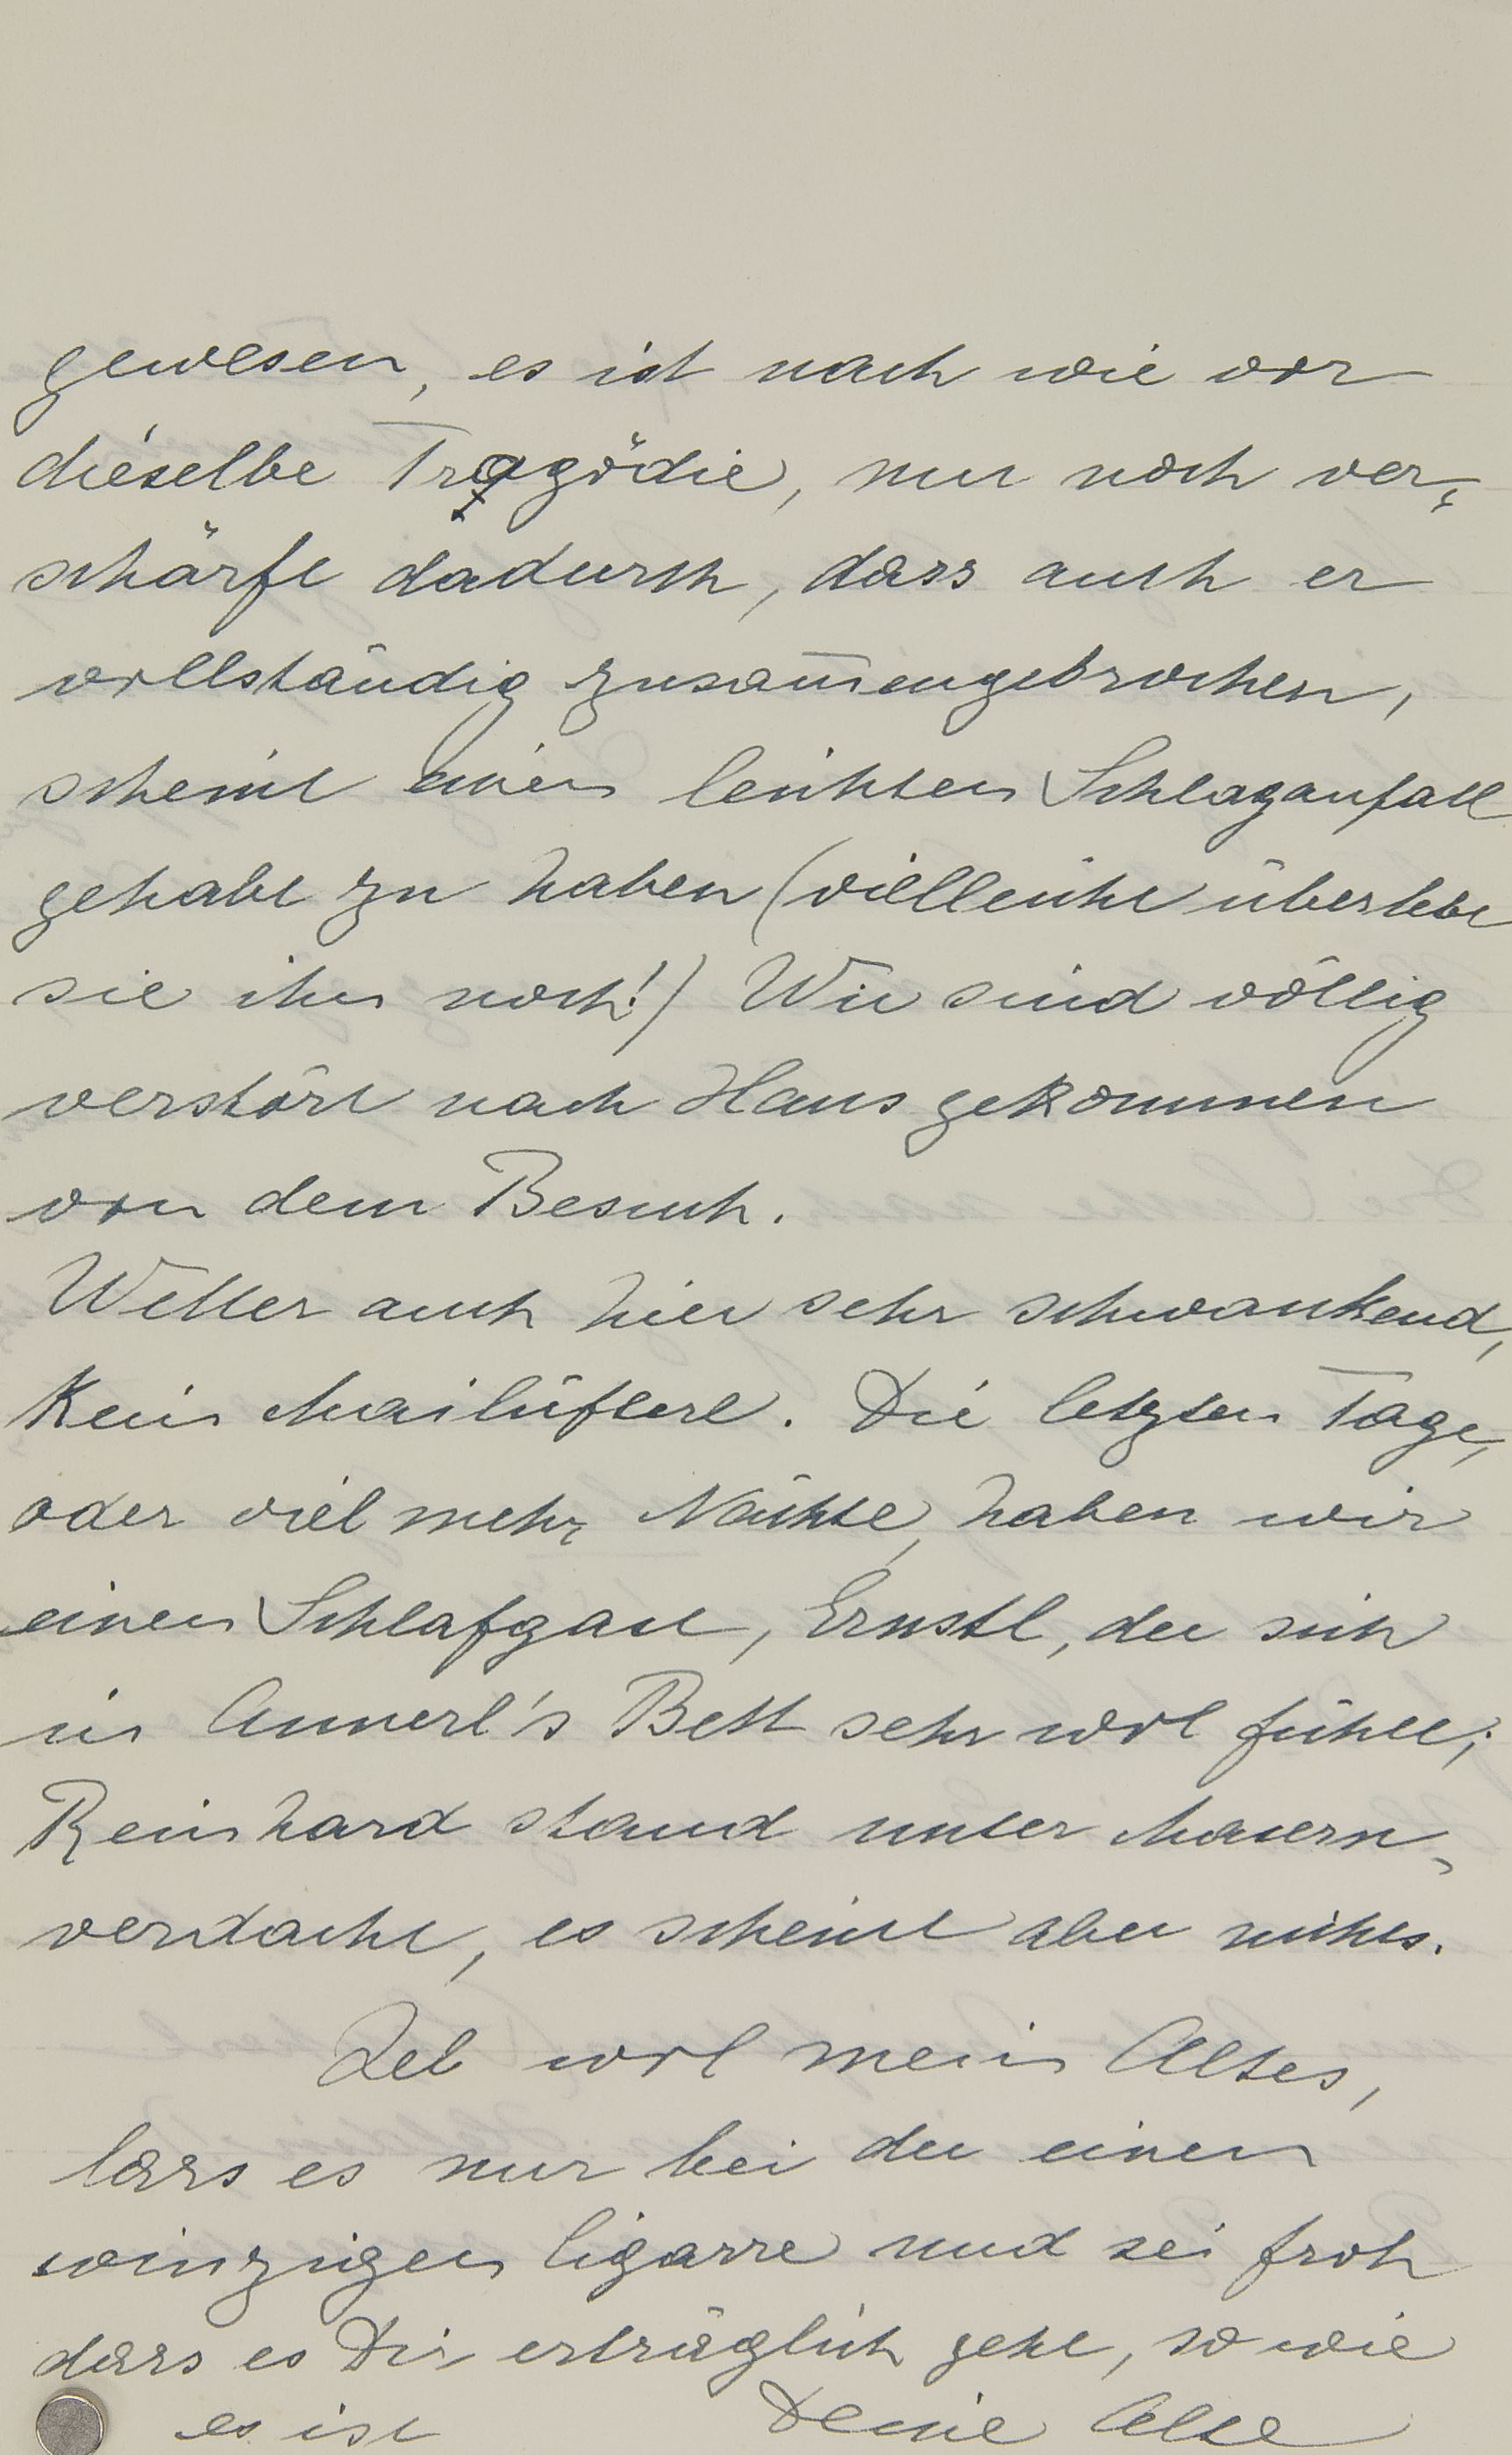 gewesen, es ist nach wie vor
dieselbe Tragödie, nur noch ver-
schärft dadurch, dass auch er
vollständig zusam̄engebrochen,
scheint einen leichten Schlaganfall
gehabt zu haben (vielleicht überlebt
sie ihn noch!) Wir sind völlig
verstört nach Haus gekommen
von dem Besuch.
Wetter auch hier sehr schwankend,
kein Mailüfterl. Die letzten Tage,
oder viel mehr Nächte, haben wir
einen Schlafgast, Ernstl, der sich
in Annerl's Bett sehr wol fühlt;
Reinhard stand unter Masern-
verdacht, es scheint aber nichts.
Leb wol mein Altes,
lass es nur bei der einen
winzigen Cigarre und sei froh
dass es Dir erträglich geht, so wie
es ist Deine Alte